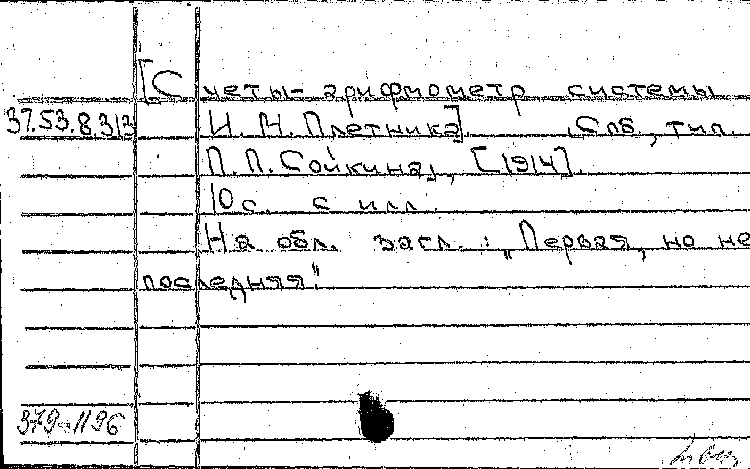 [Счеты-арифмометр системы
37.53.8.313 И. Н. Плетника]. Спб, тип.
П. П. Сойкина, [1914].
10 с. с илл.
На обл. загл.: „Первая, но не
последняя".
379-1196